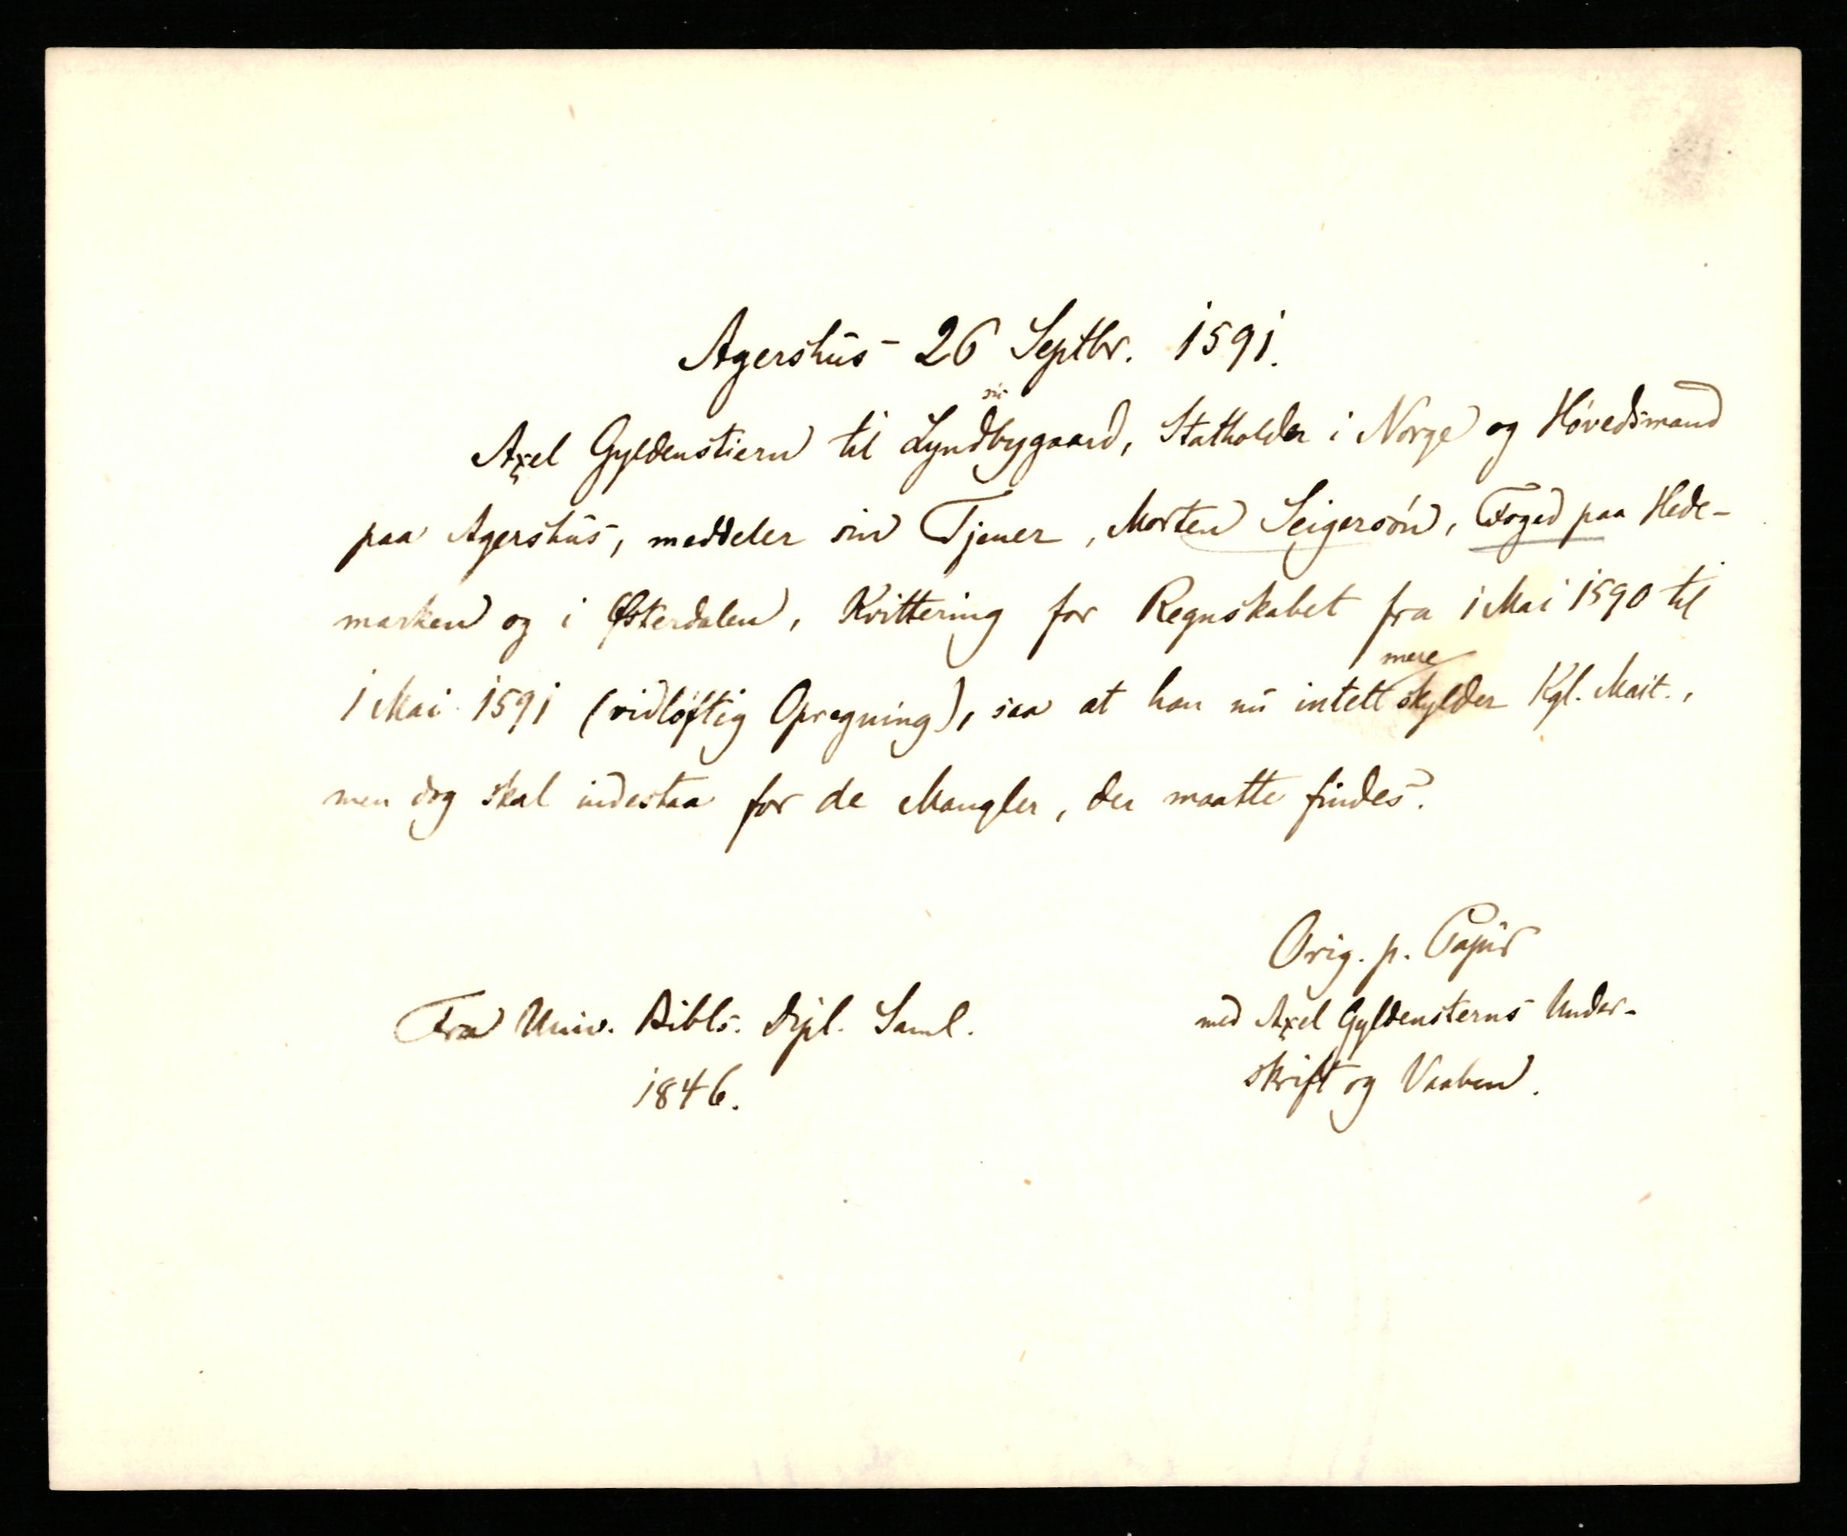 Agershus - 26 Septbr. 1591.
Axel Gyldenstiern til Lyndbygaard, Statholder i Norge og Høvedsmand
paa Agershus, meddeler sin Tjener, Morten Seigersøn, Foged paa Hede-
marken og i Østerdalen, Kvittering for Regnskabet fra 1 Mai 1590 til
1 Mai 1591 (vidløftig Opregning), saa at han nu intet mere skylder Kgl. Mait.,
men dog skal indestaa for de Mangler, der maatte findes.
Orig. p. Papir
med Axel Gyldensterns Under-
skrift og Vaaben.
Fra Univ. Bibls. Dipl. Saml.
1846.